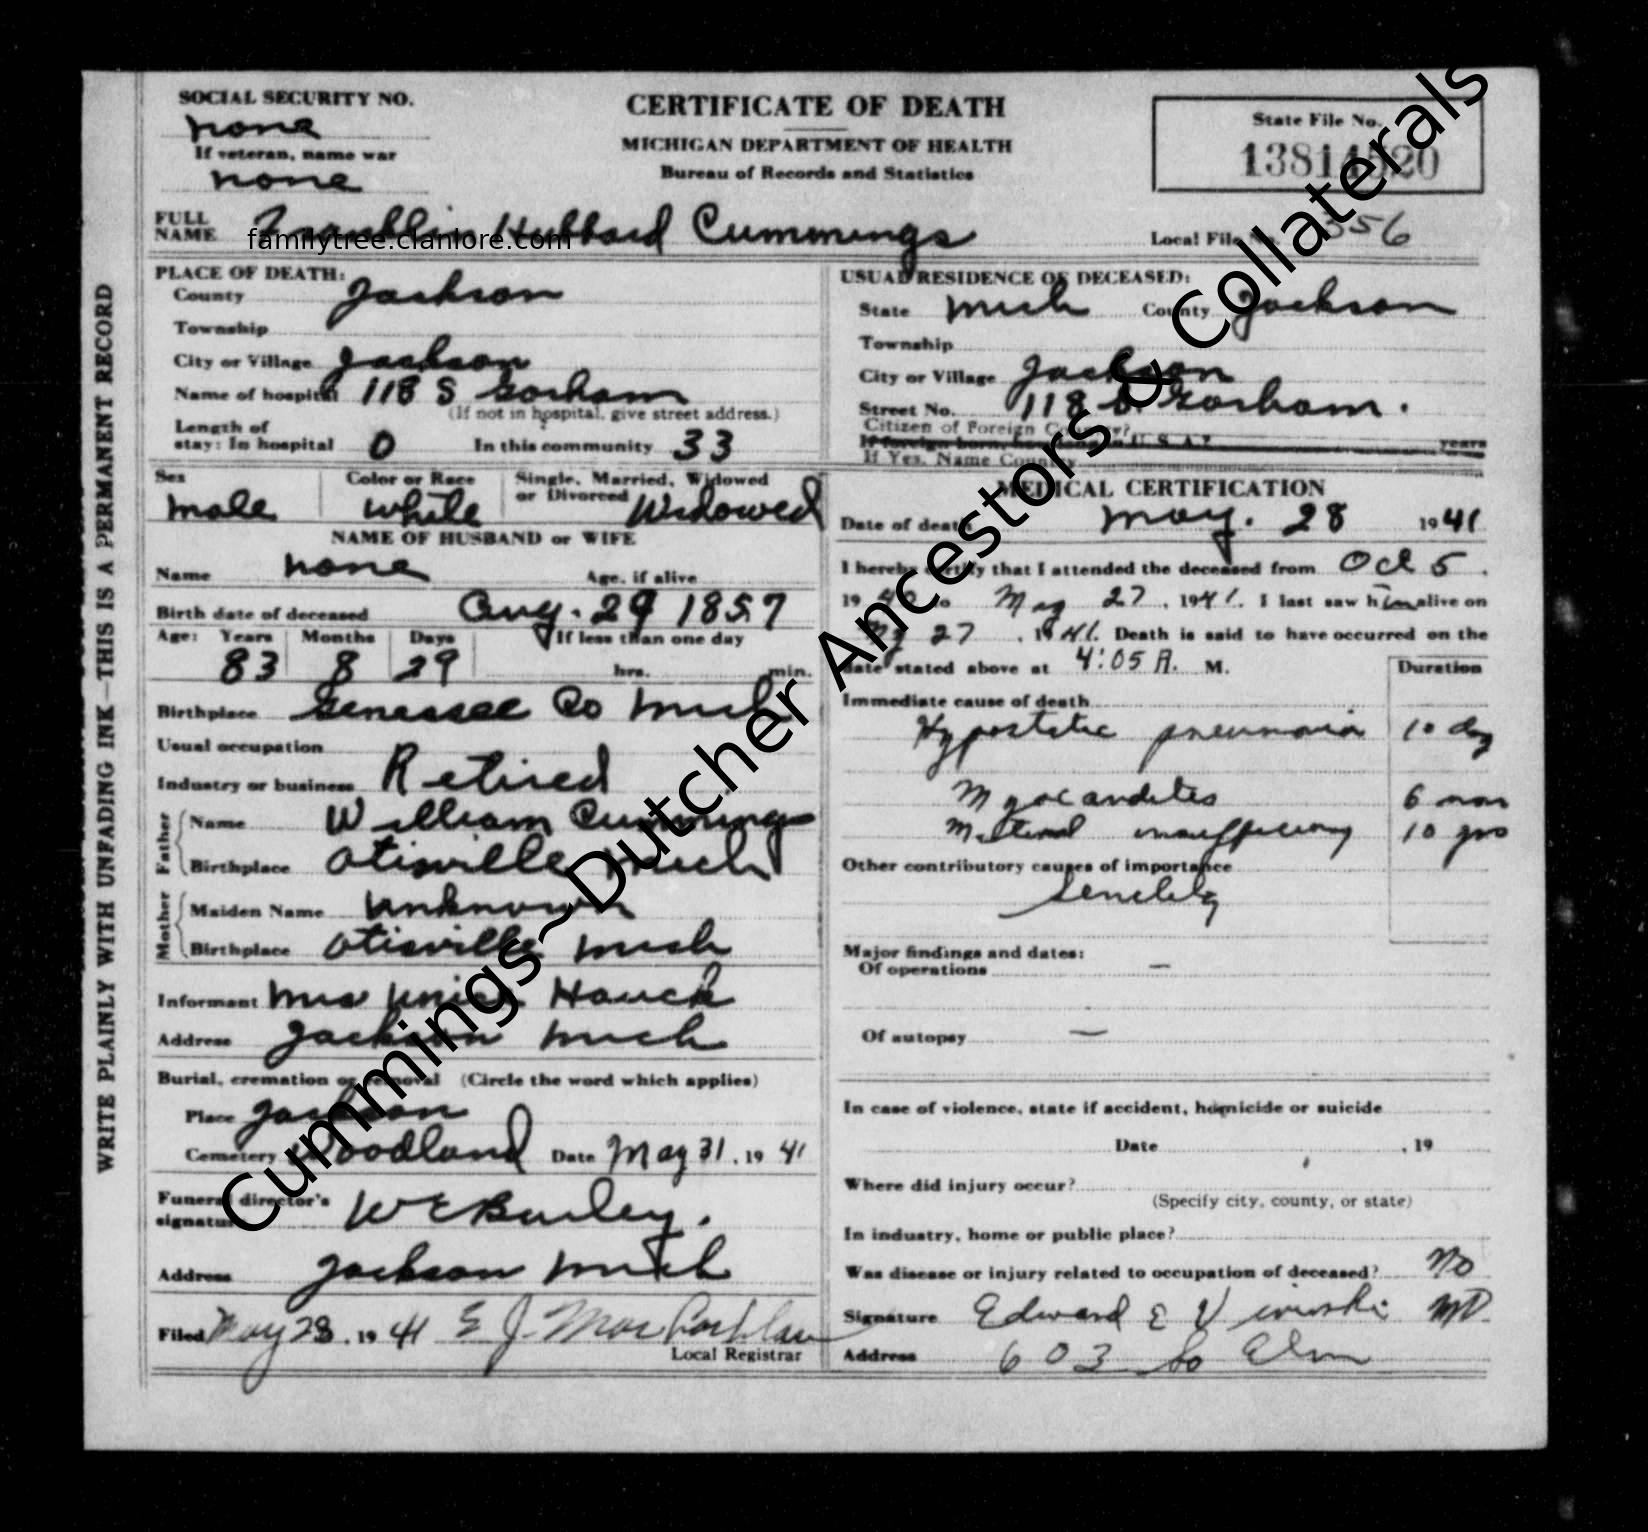 SOCIAL SECURITY NO.
none
If veteran, name war
none
CERTIFICATE OF DEATH
MICHIGAN DEPARTMENT OF HEALTH
Bureau of Records and Statistics
State File No.
Local File No. 356
FULL NAME Franklin Hubbard Cummings
familytree.clanlore.com
WRITE PLAINLY WITH UNFADING INK—THIS IS A PERMANENT RECORD
PLACE OF DEATH:
County Jackson
Township
City or Village Jackson
Name of hospital 118 S Gorham
(If not in hospital, give street address.)
Length of
stay: In hospital 0 In this community 33
USUAL RESIDENCE OF DECEASED:
State Mich County Jackson
Township
City or Village Jackson
Street No. 118 S. Gorham.
Citizen of Foreign Country?
If foreign born, how long in U. S. A.? years
If Yes, Name Country
Sex Color or Race Single, Married, Widowed
or Divorced
male white Widowed
NAME OF HUSBAND or WIFE
Name none Age, if alive
Birth date of deceased Aug. 29 1857
Age: Years Months Days If less than one day
83 8 29 hrs. min.
Birthplace Genessee Co Mich
Usual occupation
Industry or business Retired
Father
Name William Cummings
Birthplace Otisville Mich
Mother
Maiden Name Unknown
Birthplace Otisville Mich
Informant Mrs Hauck
Address Jackson Mich
Burial, cremation or removal (Circle the word which applies)
Place Jackson
Cemetery Woodland Date May 31, 19 41
Funeral director's
signature W E Burley.
Address Jackson Mich
Filed May 28, 19 41 E J.
Local Registrar
MEDICAL CERTIFICATION
Date of death May. 28 19 41
I hereby certify that I attended the deceased from Oct 5,
19 40 to May 27, 1941. I last saw him alive on
May 27, 1941. Death is said to have occurred on the
date stated above at 4:05 A. M. Duration
Immediate cause of death
Hypostatic pneumonia 10 day
Myocarditis 6 mos
insufficiency 10 yrs
Other contributory causes of importance
Senility
Major findings and dates:
Of operations —
Of autopsy —
In case of violence, state if accident, homicide or suicide
Date , 19
Where did injury occur?
(Specify city, county, or state)
In industry, home or public place?
Was disease or injury related to occupation of deceased? No
Signature Edward E MD.
Address 603 So Elm
Cummings~Dutcher Ancestors & Collaterals